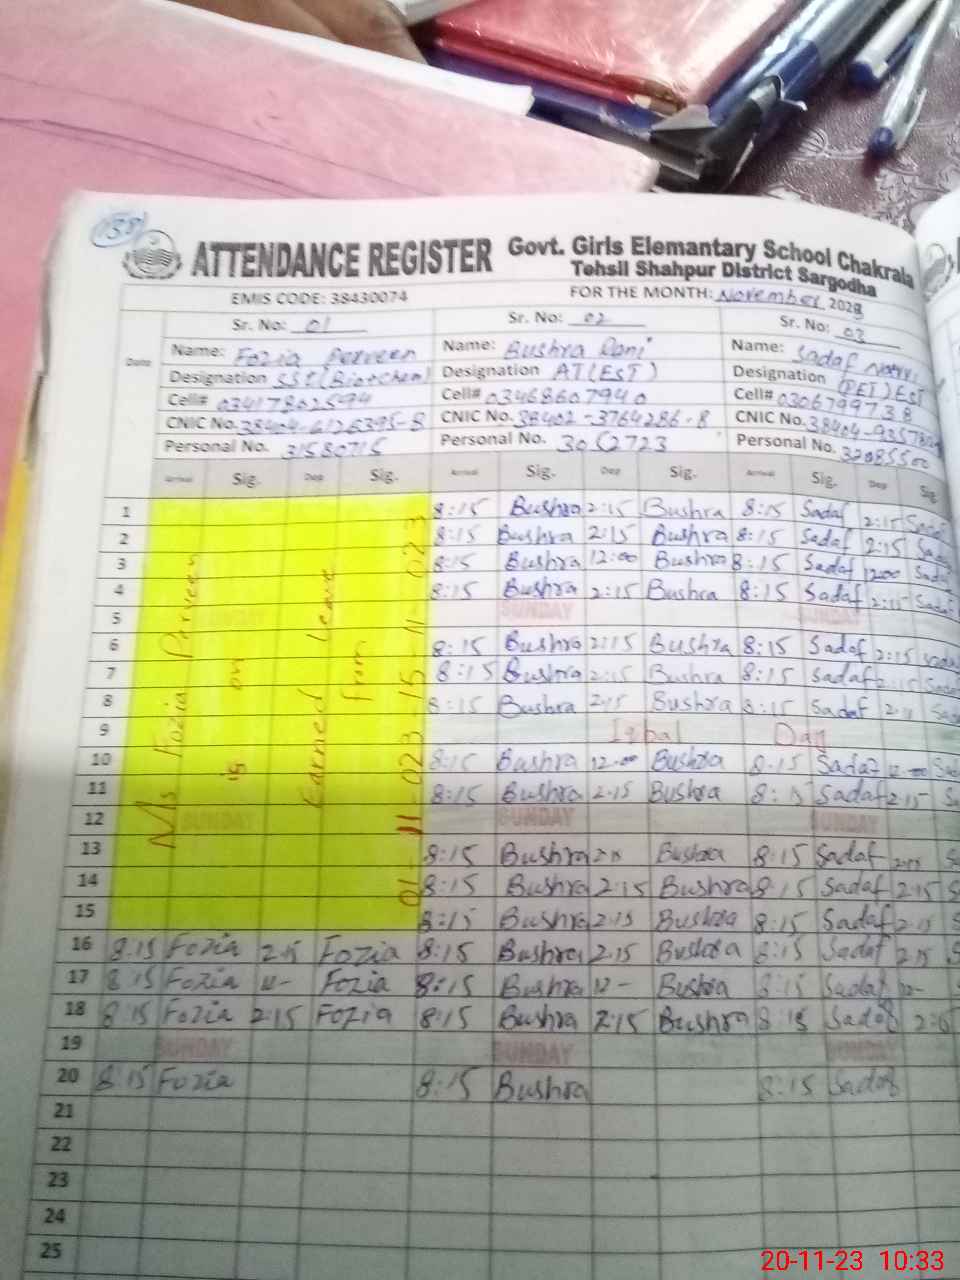 138
ATTENDANCE REGISTER Govt. Girls Elemantary School Chakrala
Tehsil Shahpur District Sargodha
EMIS CODE: 38430074 FOR THE MONTH: November 2023
Sr. No: 01 Sr. No: 02 Sr. No: 03
Date
Name: Fozia Perveen Name: Bushra Rani Name: Sadaf
Designation SST (Bio+Chem) Designation AT(EST) Designation (PET) Est
Cell# 03417802594 Cell# 03468607940 Cell# 030679973 8
CNIC No. 38404-6126395-8 CNIC No. 38402-3764286-8 CNIC No. 38404-
Personal No. 31580715 Personal No. 3052723 Personal No. 32085500
Arrival Sig. Dep Sig. Arrival Sig. Dep Sig. Arrival Sig. Dep Sig
Ms Fozia Perveen
is on
Earned Leave
from
01-11-023-15-11-023
1 8:15 Bushra 2:15 Bushra 8:15 Sadaf 2:15 Sadaf
2 8:15 Bushra 2:15 Bushra 8:15 Sadaf 2:15 Sadaf
3 8:15 Bushra 12:00 Bushra 8:15 Sadaf 1200 Sadaf
4 8:15 Bushra 2:15 Bushra 8:15 Sadaf 2:15 Sadaf
5 SUNDAY SUNDAY SUNDAY
6 8:15 Bushra 2:15 Bushra 8:15 Sadaf 2:15 Sadaf
7 8:15 Bushra 2:15 Bushra 8:15 Sadaf 2:15 Sadaf
8 8:15 Bushra 2:15 Bushra 8:15 Sadaf Sadaf
9 Iqbal Day
10 8:15 Bushra 12-00 Bushra 8:15 Sadaf 12-00 Sad
11 8:15 Bushra 2:15 Bushra 8:15 Sadaf 2:15 Sa
12 SUNDAY SUNDAY SUNDAY
13 8:15 Bushra Bushra 8:15 Sadaf S
14 8:15 Bushra 2:15 Bushra 8:15 Sadaf 2:15 S
15 8:15 Bushra 2:15 Bushra 8:15 Sadaf 2:15 S
16 8:15 Fozia 2:15 Fozia 8:15 Bushra 2:15 Bushra 8:15 Sadaf 2:15 S
17 8:15 Fozia 12- Fozia 8:15 Bushra 12- Bushra 8:15 Sadaf 12-
18 8:15 Fozia 2:15 Fozia 8:15 Bushra 2:15 Bushra 8:15 Sadaf 2:15
19 SUNDAY SUNDAY SUNDAY
20 8:15 Fozia 8:15 Bushra 8:15 Sadaf
21
22
23
24
25
20-11-23 10:33